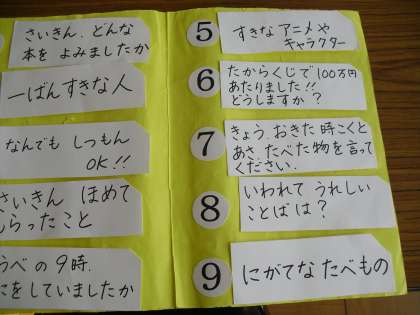 さいきん、どんな
本を よみましたか
一ばんすきな人
なんでも しつもん
OK!!
さいきん ほめて
もらったこと
うべの9時.
にをしていましたか
5
すきな アニメや
キャラクター
6
たからくじで100万円
あたりました!!
どうしますか?
7
きょう.おきた時こくと
あさ たべた物を言って
ください.
8
いわれて うれしい
ことばは?
9
にがてな たべもの